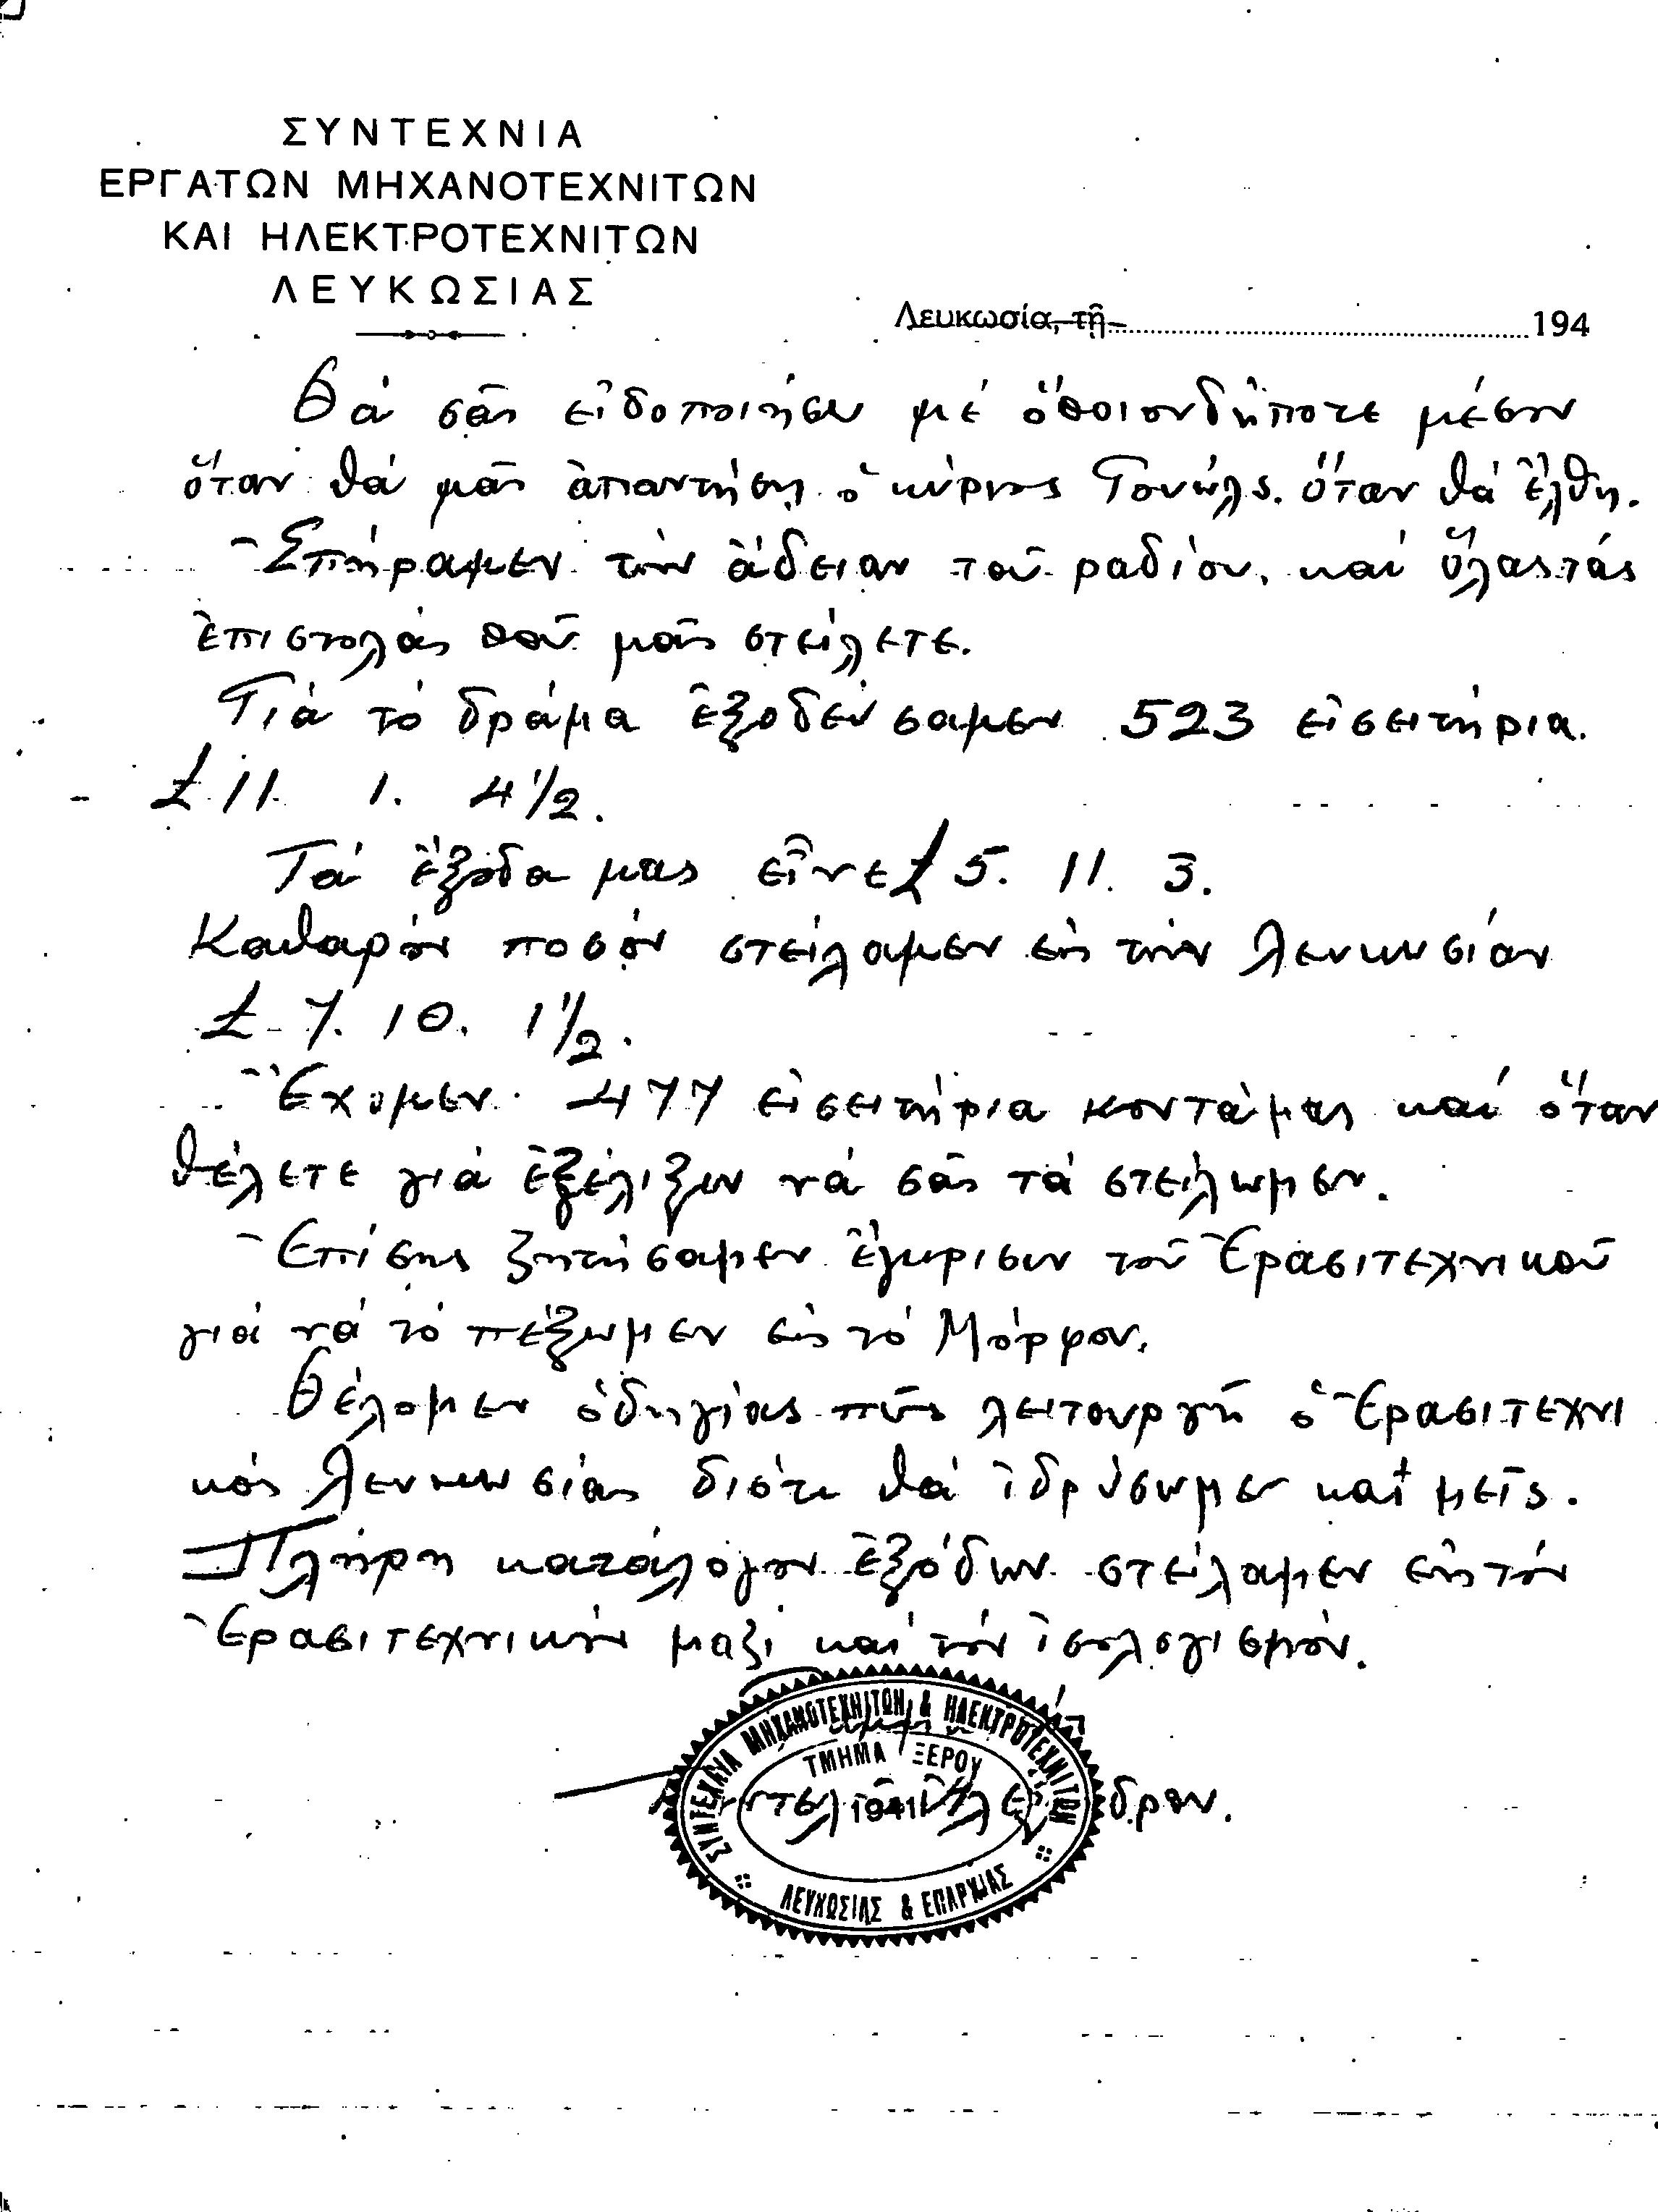 ΣΥΝΤΕΧΝΙΑ
ΕΡΓΑΤΩΝ ΜΗΧΑΝΟΤΕΧΝΙΤΩΝ
ΚΑΙ ΗΛΕΚΤΡΟΤΕΧΝΙΤΩΝ
ΛΕΥΚΩΣΙΑΣ
Λευκωσία, τῇ 194
Θά σᾶς εἰδοποιήσω μέ ὁποιονδήποτε μέσον
ὅταν θά μᾶς ἀπαντήση ὁ κύριος Γουώλς. ὅταν θά ἔλθη.
Ἐπήραμεν τήν ἄδειαν τοῦ ραδίου, καί ὅλας τάς
ἐπιστολάς ποῦ μᾶς στείλετε.
Γιά τό δράμα ἐξοδεύσαμεν 523 εἰσειτήρια.
£ 11. 1. 4½.
Τά ἔξοδα μας εἶνε £ 5. 11. 3.
Καθαρόν ποσόν στείλαμεν εἰς τήν Λευκωσίαν
£ 7. 10. 1½.
Ἔχομεν 477 εἰσειτήρια κοντά μας καί ὅταν
θέλετε γιά ἐξέλιξιν νά σᾶς τά στείλωμεν.
Ἐπίσης ζητήσαμεν ἔγκρισιν τοῦ Ἐρασιτεχνικοῦ
γιά νά τό πέξωμεν εἰς τό Μόρφου.
Θέλομεν ὁδηγίας πῶς λειτουργῆ ὁ Ἐρασιτεχνι
κός Λευκωσίας διότι θά ἱδρύσωμεν καί μεῖς.
Πλήρη κατάλογον ἐξόδων στείλαμεν εἰς τόν
Ἐρασιτεχνικόν μαζί καί τόν ἰσολογισμόν.
ΣΥΝΤΕΧΝΙΑ ΜΗΧΑΝΟΤΕΧΝΙΤΩΝ & ΗΛΕΚΤΡΟΤΕΧΝΙΤΩΝ
ΤΜΗΜΑ ΞΕΡΟΥ
1941
ΛΕΥΚΩΣΙΑΣ & ΕΠΑΡΧΙΑΣ